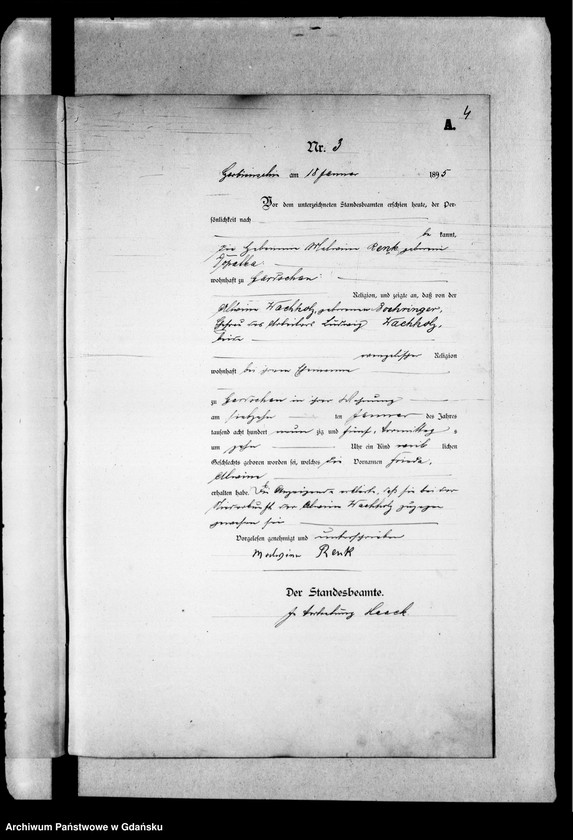 4
A.
Nr. 3
am 18 Januar 1895
Vor dem unterzeichneten Standesbeamten erschien heute, der Per-
sönlichkeit nach
be kannt,
die Hebamme Malwine Renk geborene
wohnhaft zu
Religion, und zeigte an, daß von der
Alwine Wachholz, geborenen Boehringer,
Ehefrau des Arbeiters Ludwig Wachholz,
beide
evangelischer Religion
wohnhaft bei ihrem Ehemanne
zu in ihrer Wohnung
am siebzehn ten Januar des Jahres
tausend acht hundert neun zig und fünf, Vormittag s
um zehn Uhr ein Kind weib lichen
Geschlechts geboren worden sei, welches die Vornamen Frieda,
Alwine
erhalten habe. Die Anzeigende erklärte, daß sie bei der
Niederkunft der Alwine Wachholz zugegen
gewesen sei
Vorgelesen, genehmigt und unterschrieben
Malwine Renk
Der Standesbeamte.
In Vertretung Haack
Archiwum Państwowe w Gdańsku